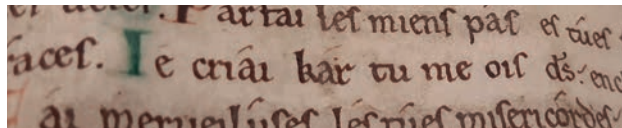 Parfai les miens pas es tües
faces. Ie criai kar tu me ois ds: enc
ai merueilluses les tües misericordes